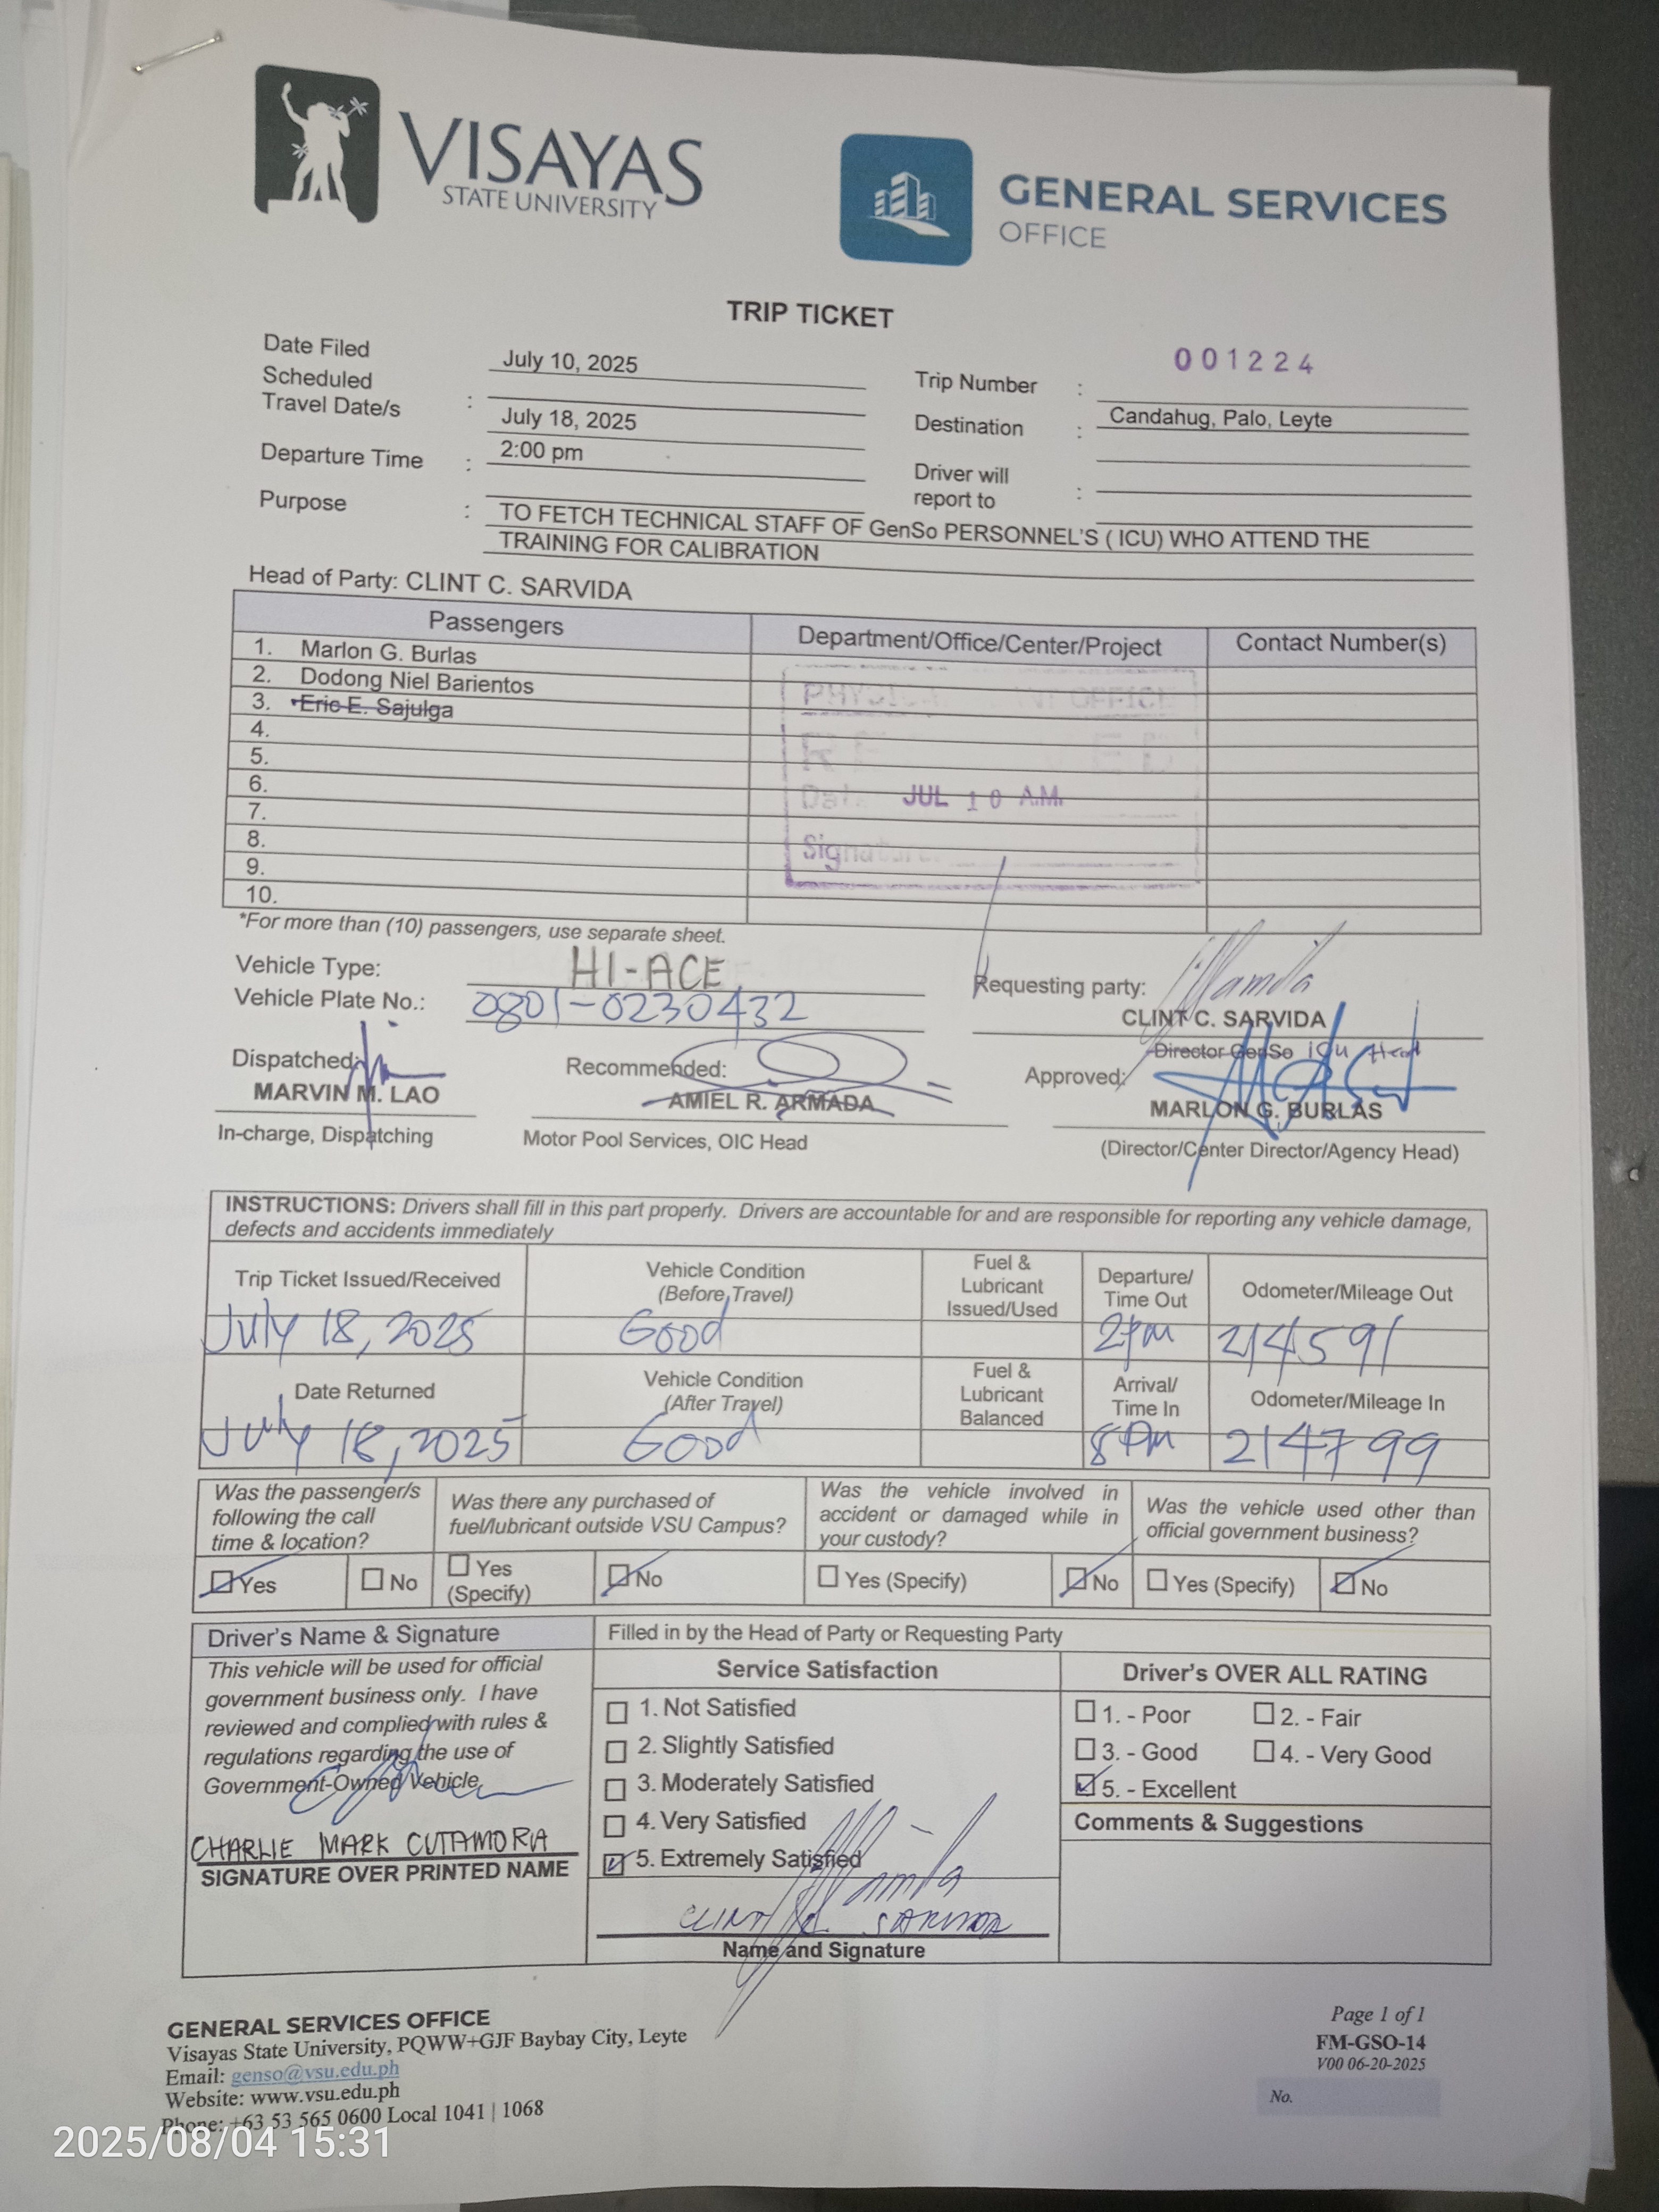 VISAYAS
STATE UNIVERSITY
GENERAL SERVICES
OFFICE
TRIP TICKET
Date Filed July 10, 2025
Trip Number : 001224
Scheduled
Travel Date/s : July 18, 2025
Destination : Candahug, Palo, Leyte
Departure Time : 2:00 pm
Driver will
report to :
Purpose : TO FETCH TECHNICAL STAFF OF GenSo PERSONNEL'S ( ICU) WHO ATTEND THE
TRAINING FOR CALIBRATION
Head of Party: CLINT C. SARVIDA
Passengers Department/Office/Center/Project Contact Number(s)
1. Marlon G. Burlas
2. Dodong Niel Barientos
3. Eric E. Sajulga
4.
5.
6.
7.
8.
9.
10.
JUL 10 A.M.
Signature
*For more than (10) passengers, use separate sheet.
Vehicle Type: HI-ACE
Vehicle Plate No.: 0801-0230432
Requesting party:
CLINT C. SARVIDA
Director GenSo ICU Head
Dispatched:
MARVIN M. LAO
In-charge, Dispatching
Recommended:
AMIEL R. ARMADA
Motor Pool Services, OIC Head
Approved:
MARLON G. BURLAS
(Director/Center Director/Agency Head)
INSTRUCTIONS: Drivers shall fill in this part properly. Drivers are accountable for and are responsible for reporting any vehicle damage,
defects and accidents immediately
Trip Ticket Issued/Received Vehicle Condition (Before Travel) Fuel & Lubricant Issued/Used Departure/ Time Out Odometer/Mileage Out
July 18, 2025 Good 2pm 214591
Date Returned Vehicle Condition (After Travel) Fuel & Lubricant Balanced Arrival/ Time In Odometer/Mileage In
July 18, 2025 Good 8pm 214799
Was the passenger/s
following the call
time & location?
Was there any purchased of
fuel/lubricant outside VSU Campus?
Was the vehicle involved in
accident or damaged while in
your custody?
Was the vehicle used other than
official government business?
Yes No Yes (Specify) No Yes (Specify) No Yes (Specify) No
Driver's Name & Signature
This vehicle will be used for official
government business only. I have
reviewed and complied with rules &
regulations regarding the use of
Government-Owned Vehicle.
CHARLIE MARK CUTAMORA
SIGNATURE OVER PRINTED NAME
Filled in by the Head of Party or Requesting Party
Service Satisfaction
1. Not Satisfied
2. Slightly Satisfied
3. Moderately Satisfied
4. Very Satisfied
5. Extremely Satisfied
CLINT C. SARVIDA
Name and Signature
Driver's OVER ALL RATING
1. - Poor 2. - Fair
3. - Good 4. - Very Good
5. - Excellent
Comments & Suggestions
GENERAL SERVICES OFFICE
Visayas State University, PQWW+GJF Baybay City, Leyte
Email: genso@vsu.edu.ph
Website: www.vsu.edu.ph
Phone: +63 53 565 0600 Local 1041 | 1068
Page 1 of 1
FM-GSO-14
V00 06-20-2025
No.
2025/08/04 15:31